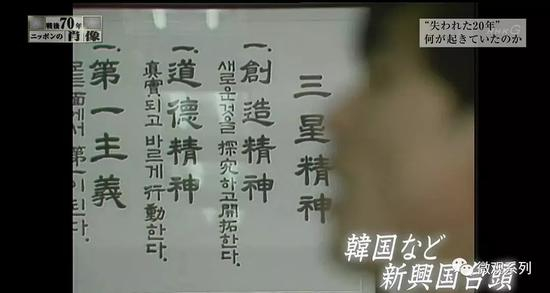 戦後70年
ニッポンの肖像
“失われた20年”
何が起きていたのか
三星精神
一.創造精神
새로운것을 探究하고開拓한다.
一.道德精神
眞實되고 바르게 行動한다.
一.第一主義
모든面에서 第一이 된다.
韓国など
新興国台頭
微观系列